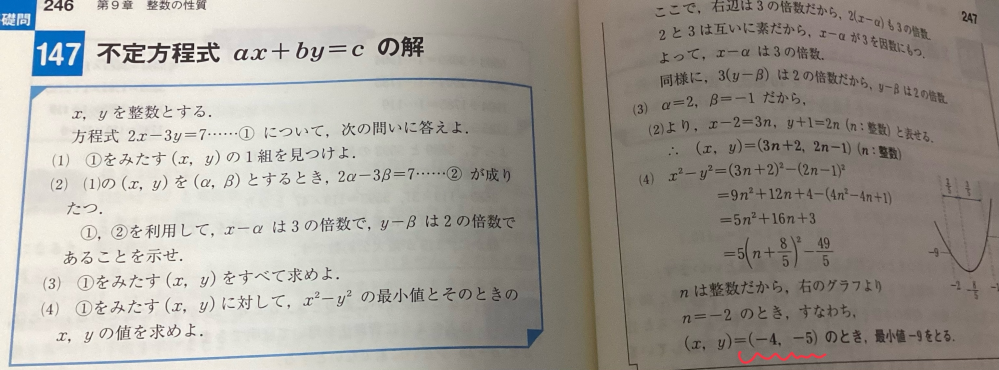 礎問
246 第9章 整数の性質
147 不定方程式 ax+by=c の解
x, y を整数とする.
方程式 2x-3y=7……① について, 次の問いに答えよ.
(1) ①をみたす (x, y) の1組を見つけよ.
(2) (1)の (x, y) を (α, β) とするとき, 2α-3β=7……② が成り
たつ.
①, ②を利用して, x-α は3の倍数で, y-β は2の倍数で
あることを示せ.
(3) ①をみたす (x, y) をすべて求めよ.
(4) ①をみたす (x, y) に対して, x²-y² の最小値とそのときの
x, y の値を求めよ.
247
ここで, 右辺は3の倍数だから, 2(x-α) も3の倍数.
2と3は互いに素だから, x-α が3を因数にもつ.
よって, x-α は3の倍数.
同様に, 3(y-β) は2の倍数だから, y-β は2の倍数.
(3) α=2, β=-1 だから,
(2)より, x-2=3n, y+1=2n (n:整数) と表せる.
∴ (x, y)=(3n+2, 2n-1) (n:整数)
(4) x²-y²=(3n+2)²-(2n-1)²
=9n²+12n+4-(4n²-4n+1)
=5n²+16n+3
=5(n+8/5)²-49/5
n は整数だから, 右のグラフより
n=-2 のとき, すなわち,
(x, y)=(-4, -5) のとき, 最小値-9をとる.
2/5 3/5
-9
-2 -8/5